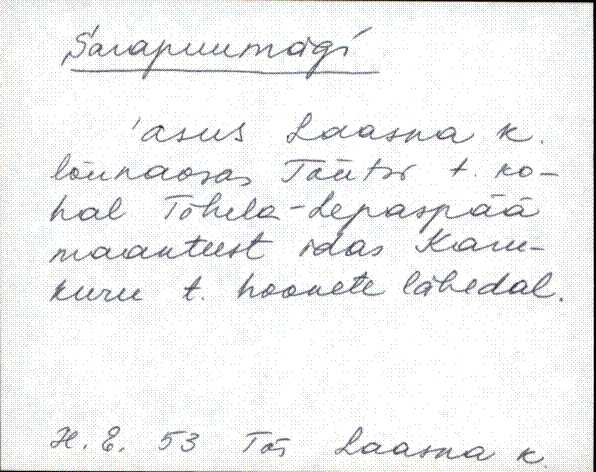 Sarapuumägi
asus Laasna k.
lõunaosas Tõutsi t. ko-
hal Tõhela-Lepaspää
maanteest idas Karu-
kuru t. hoonete lähedal.
H. E. 53 Tõs Laasna k.